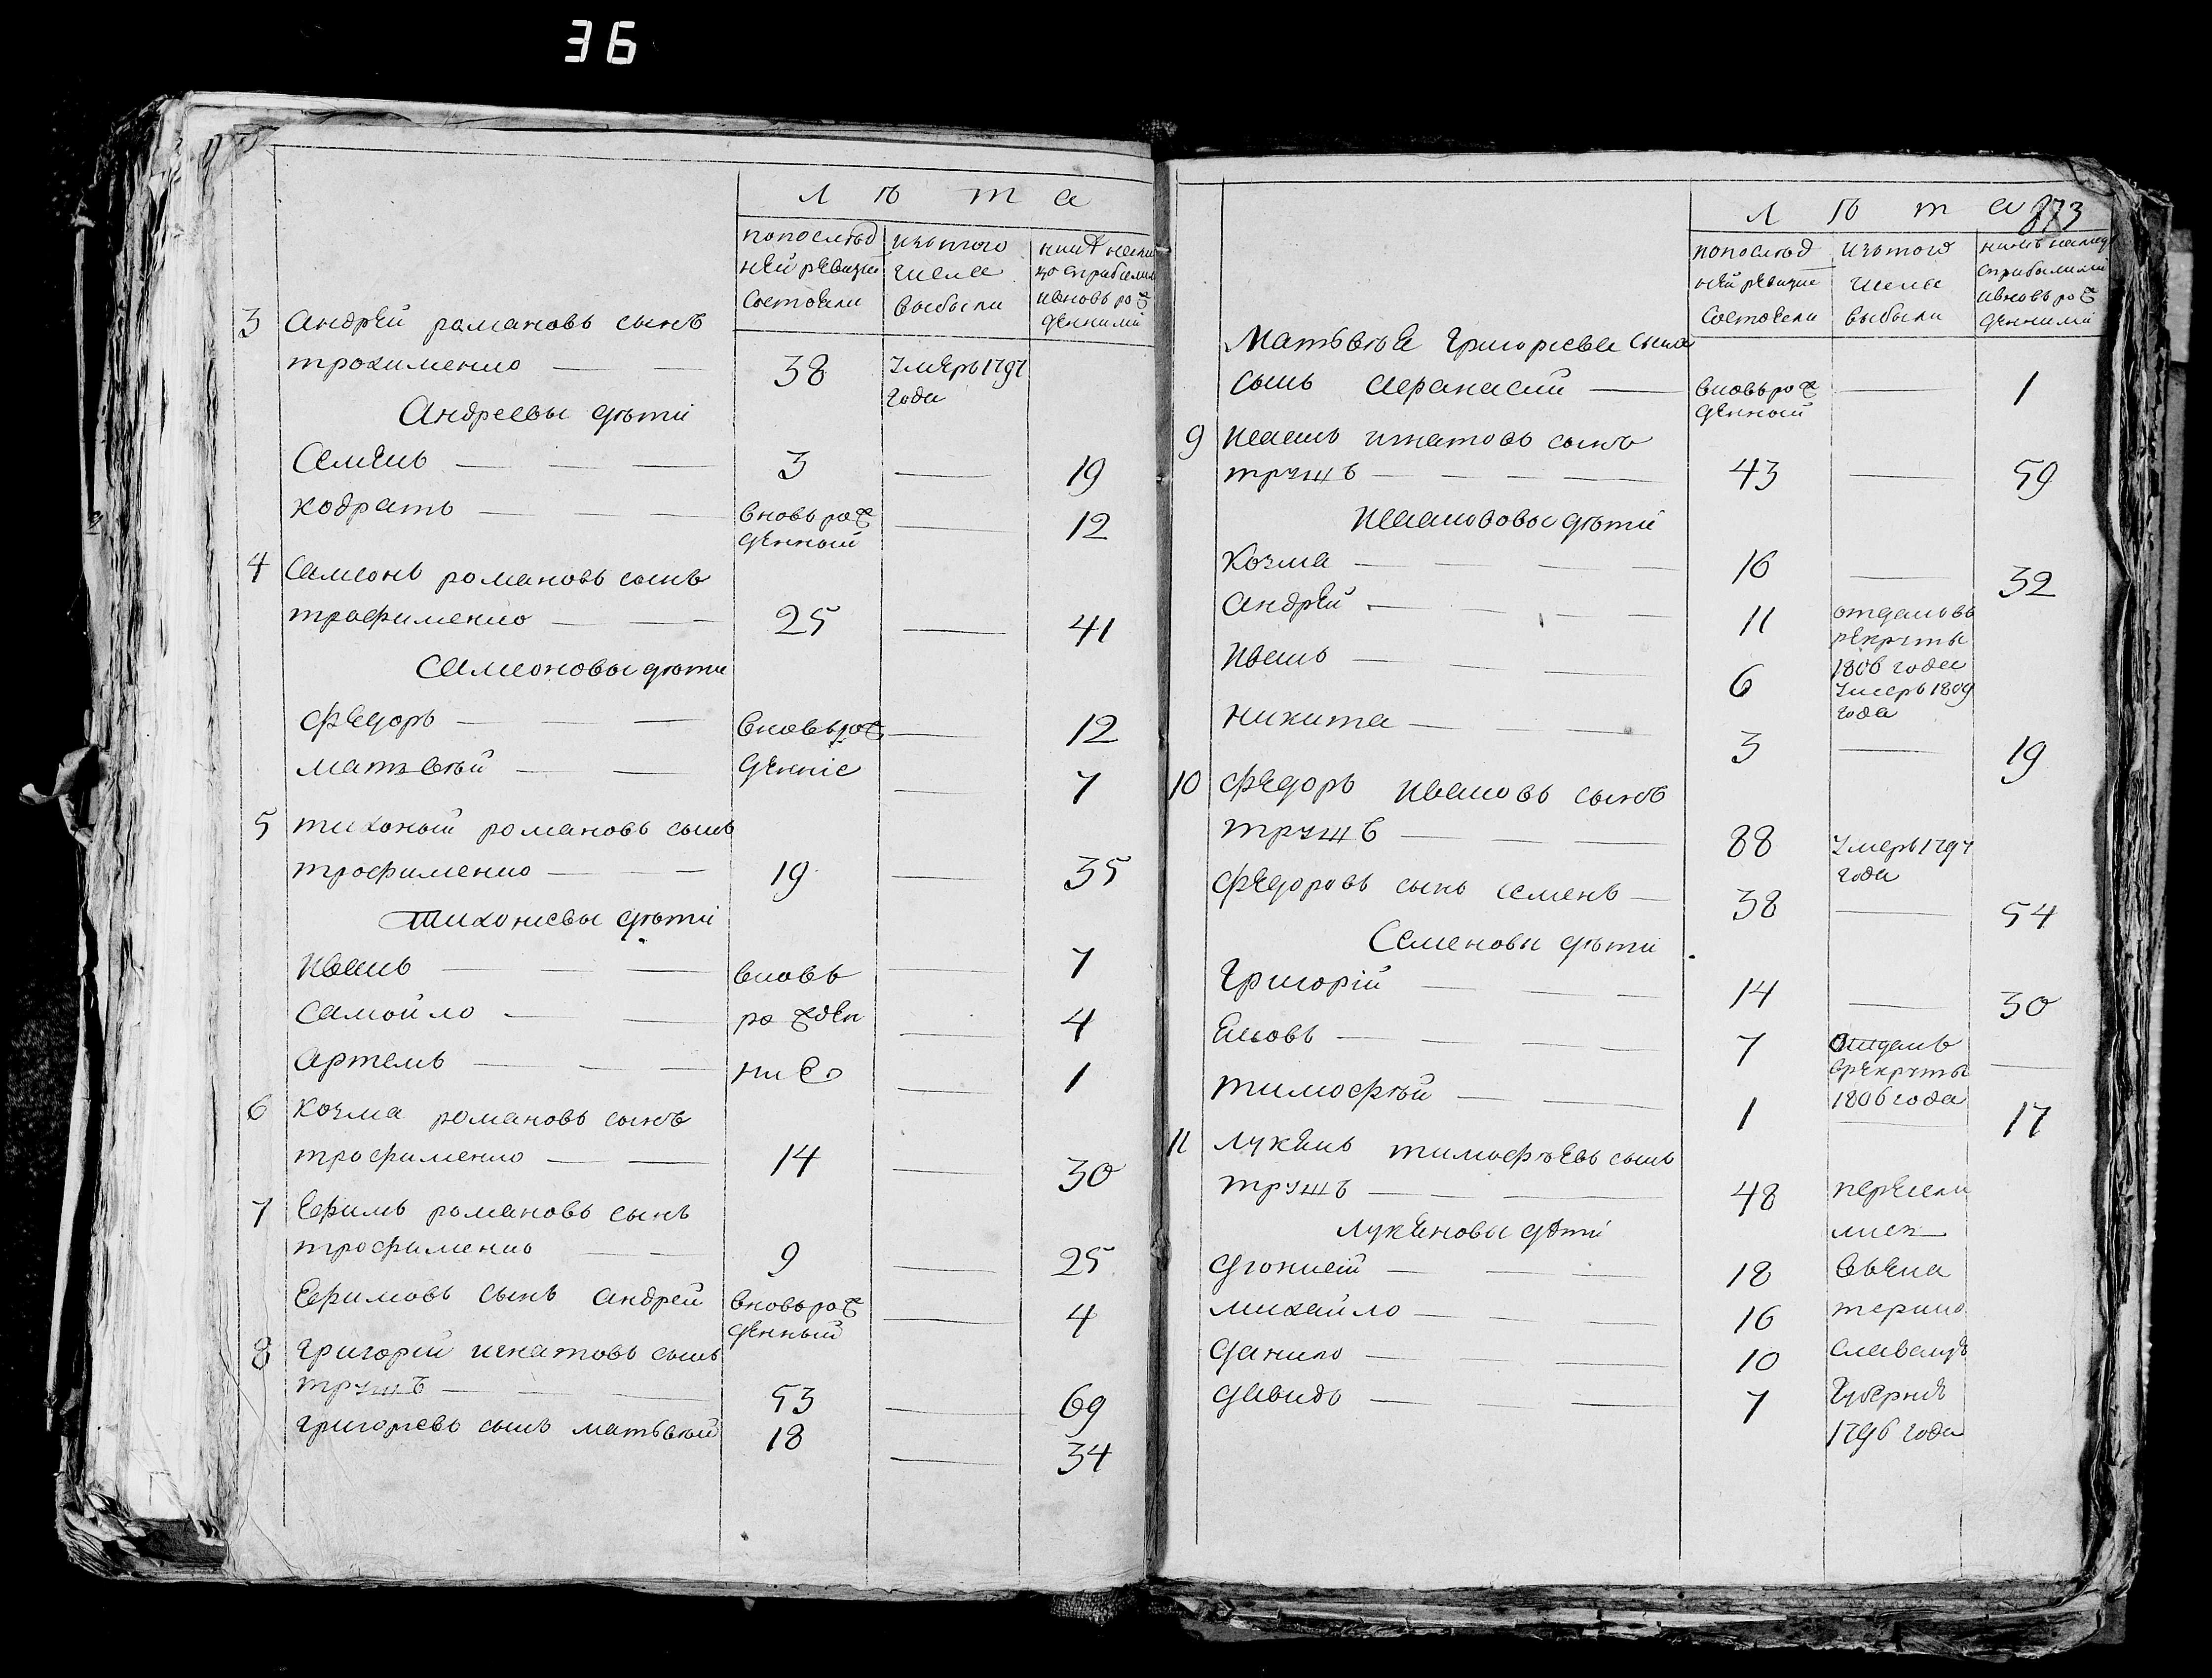 36
Л Ѣ т а
попослѣд
ней ревизіи
состояли
изътого
числа
выбыли
сприбылими
ивновь рож
денними
3 Андрей романовъ сынъ
трохименко — — 38 Умеръ 1797
года
Андреевы дѣти
Семенъ — — — 3 — 19
кодратъ — — — вновь рож — 12
денный
4 Самсонъ романовъ сынъ
трофименко — — 25 — 41
Самсоновы дѣти
федоръ — — вновьрож — 12
матвѣй — — денніе — 7
5 тихоный романовъ сынъ
трофименко — — 19 — 35
Тихониевы дѣти
иванъ — — — вновь — 7
самойло — — рожден — 4
артемъ — — — ние — 1
6 козма романовъ сынъ
трофименко — — 14 — 30
7 Ефимъ романовъ сынъ
трофименко — — 9 — 25
Ефимовъ сынъ андрей вновьрож — 4
денный
8 григорій игнатовъ сынъ
трушъ — — — 53 — 69
григориевъ сынъ матвѣй 18 — 34
873
Л Ѣ т а
попослѣд
ней ревизіи
состояли
изътого
числа
выбыли
сприбылими
ивновь рож
денними
Матвѣя Григориева сына
сынъ афанасий — вновьрож — 1
денный
9 иванъ игнатовъ сынъ
трушъ — — — — — 43 — 59
Ивановы дѣти
козма — — — — 16 — 32
андрей — — — — 11 отданъ въ
рекруты
1806 года
иванъ — — — — 6 Умеръ 1809
года
никита — — — — 3 — 19
10 федоръ ивановъ сынъ
трушъ — — — 88 Умеръ 1797
года
федоровъ сынъ семенъ — 38 — 54
Семеновы дѣти
Григорій — — — 14 — 30
Яковъ — — — — 7 Отданъ —
врекруты
1806 года
тимофѣй — — 1 — 17
11 лукянъ тимофѣевъ сынъ
трушъ — — — 48 пересели
лукяновы дѣти лись
— — — 18 въека
михайло — — — 16 терино
данило — — — 10 славскую
давидъ — — — 7 Губерню
1796 года